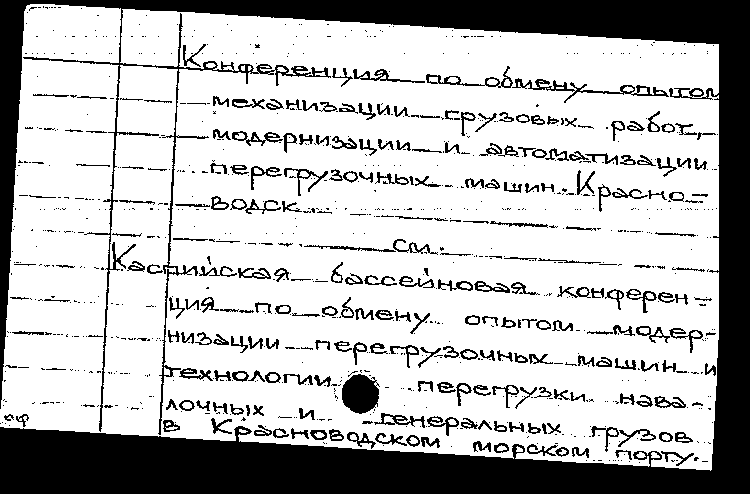 Конференция по обмену опытом
механизации грузовых работ,
модернизации и автоматизации
перегрузочных машин. Красно-
водск.
см.
Каспийская бассейновая конферен-
ция по обмену опытом модер-
низации перегрузочных машин и
технологии перегрузки нава-
лочных и генеральных грузов
в Красноводском морском порту.